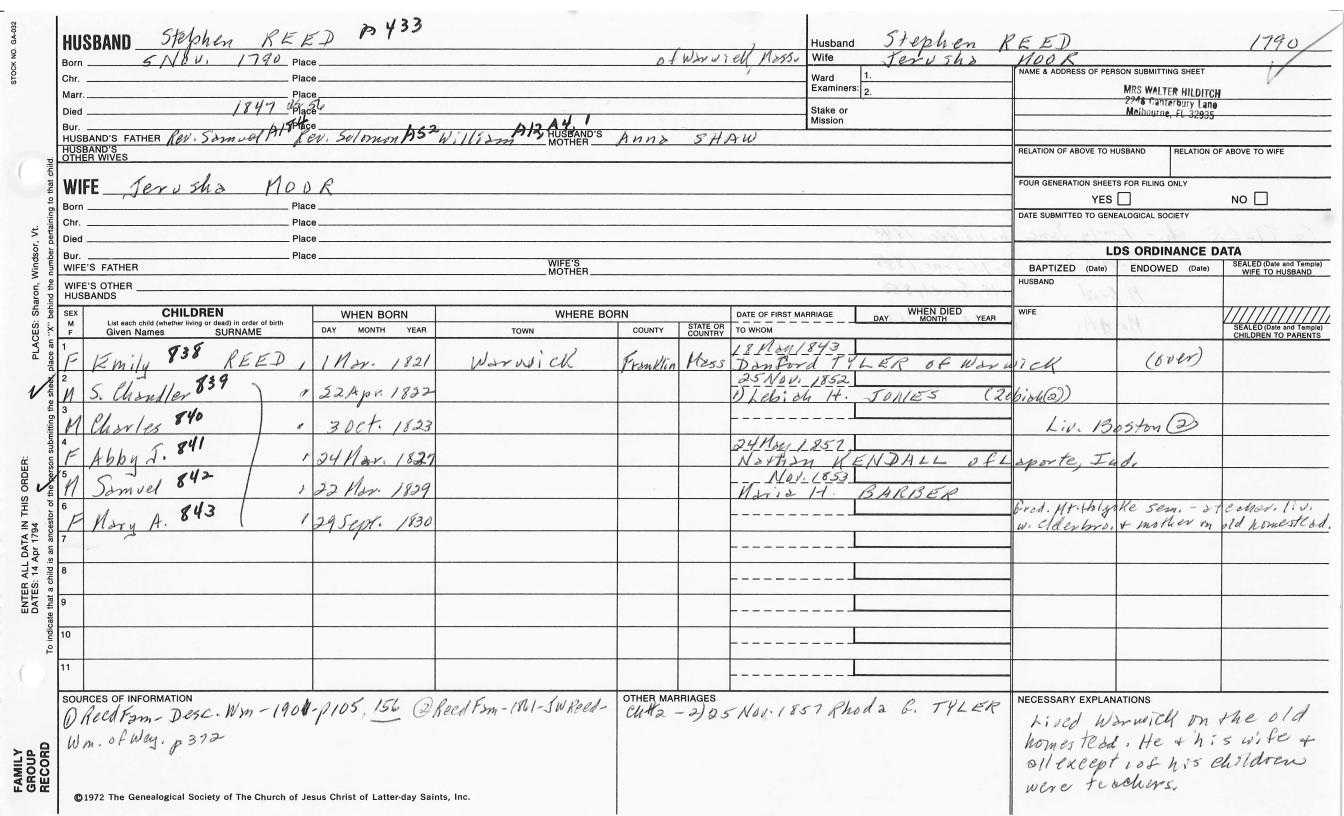 STOCK NO. GA-032
HUSBAND Stephen REED p 433
Born 5 Nov. 1790 Place of Warwick, Mass.
Chr. Place
Marr. Place
Died 1847 Place
Bur. Place
HUSBAND'S FATHER Rev. Samuel A184 Rev. Solomon A52 William A13 A4, 1 HUSBAND'S MOTHER Anna SHAW
HUSBAND'S OTHER WIVES
Husband Stephen REED 1790
Wife Jerusha MOOR
Ward Examiners: 1. 2.
Stake or Mission
NAME & ADDRESS OF PERSON SUBMITTING SHEET
MRS WALTER HILDITCH
2248 Canterbury Lane
Melbourne, FL 32935
RELATION OF ABOVE TO HUSBAND RELATION OF ABOVE TO WIFE
FOUR GENERATION SHEETS FOR FILING ONLY
YES NO
DATE SUBMITTED TO GENEALOGICAL SOCIETY
WIFE Jerusha MOOR
Born Place
Chr. Place
Died Place
Bur. Place
WIFE'S FATHER WIFE'S MOTHER
WIFE'S OTHER HUSBANDS
LDS ORDINANCE DATA
BAPTIZED (Date) ENDOWED (Date) SEALED (Date and Temple) WIFE TO HUSBAND
HUSBAND
WIFE
SEALED (Date and Temple) CHILDREN TO PARENTS
SEX M F CHILDREN WHEN BORN WHERE BORN DATE OF FIRST MARRIAGE WHEN DIED
List each child (whether living or dead) in order of birth
Given Names SURNAME DAY MONTH YEAR TOWN COUNTY STATE OR COUNTRY TO WHOM DAY MONTH YEAR
1 F Emily 838 REED 1 Mar. 1821 Warwick Franklin Mass 18 May 1843 Danford TYLER of Warwick (over)
2 M S. Chandler 839 " 22 Apr. 1822 25 Nov. 1852 1) Zebiah H. JONES (Zebiah②)
3 M Charles 840 " 3 Oct. 1823 Liv. Boston ②
4 F Abby J. 841 24 Mar. 1827 24 May 1857 Nathan KENDALL of Laporte, Ind.
5 M Samuel 842 22 Mar. 1829 Nov. 1853 Maria H. BARBER
6 F Mary A. 843 29 Sept. 1830 Grad. Mt. Holyoke Sem. - a teacher. liv.
w. elder bro. & mother on old homestead.
7
8
9
10
11
SOURCES OF INFORMATION
① Reed Fam- Desc. Wm - 1901-p105, 156 ② Reed Fam-1861-JW Reed-
Wm. of Wey. p 372
OTHER MARRIAGES
Ch#2 - 2) 25 Nov. 1857 Rhoda E. TYLER
NECESSARY EXPLANATIONS
Lived Warwick on the old
homestead. He & his wife &
all except 1 of his children
were teachers.
©1972 The Genealogical Society of The Church of Jesus Christ of Latter-day Saints, Inc.
FAMILY GROUP RECORD
ENTER ALL DATA IN THIS ORDER:
DATES: 14 Apr 1794
PLACES: Sharon, Windsor, Vt.
To indicate that a child is an ancestor of the person submitting the sheet, place an "X" behind the number pertaining to that child.